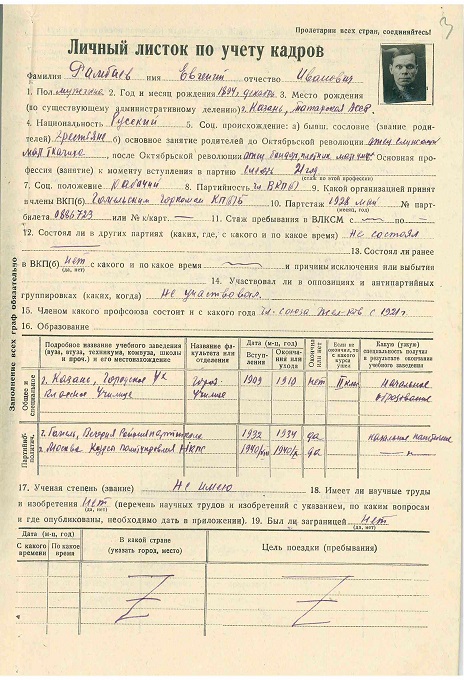 3
Пролетарии всех стран, соединяйтесь!
Личный листок по учету кадров
Фамилия имя Евгений отчество Иванович
1. Пол мужской 2. Год и месяц рождения 1894, декабрь 3. Место рождения
(по существующему административному делению) г. Казань, Татарская АССР
4. Национальность Русский 5. Соц. происхождение: а) бывш. сословие (звание роди-
телей) крестьяне б) основное занятие родителей до Октябрьской революции отец
мать ткачиха, после Октябрьской революции отец мать Основная про-
фессия (занятие) к моменту вступления в партию 21 год
(стаж по этой профессии)
7. Соц. положение Рабочий 8. Партийность чл. ВКП(б) 9. Какой организацией принят
в члены ВКП(б) Гомельским горкомом КП(б)Б 10. Партстаж 1928 май № парт-
(месяц, год)
билета 0886723 или № к/карт. — 11. Стаж пребывания в ВЛКСМ с — по —
12. Состоял ли в других партиях (каких, где, с какого и по какое время) Не состоял
13. Состоял ли ранее
в ВКП(б) Нет с какого и по какое время и причины исключения или выбытия
(да, нет)
14. Участвовал ли в оппозициях и антипартийных
группировках (каких, когда) Не участвовал.
15. Членом какого профсоюза состоит и с какого года чл. союза с 1921 г.
16. Образование
Заполнение всех граф обязательно
Подробное название учебного заведения (вуза, втуза, техникума, комвуза, школы и проч.) и его местонахождение
Название факультета или отделения
Дата (м-ц, год)
Вступления
Окончания или ухода
Окончил или нет
Если не окончил, то с какого курса ушел
Какую (узкую) специальность получил в результате окончания учебного заведения
Общее и специальное
г. Казань, Городское Училище
Город. Училище
1909 1910 нет II кл. Начальное образование
Партийно-политич.
г. Гомель, Вечерняя Райсовпартшкола 1932 1934 да
г. Москва Курсы НКПС 1940/ 1940/ да — " —
17. Ученая степень (звание) Не имею 18. Имеет ли научные труды
и изобретения Нет (перечень научных трудов и изобретений с указанием, по каким вопросам
(да, нет)
и где опубликованы, необходимо дать в приложении). 19. Был ли заграницей Нет
(да, нет)
Дата (м-ц, год)
С какого времени
По какое время
В какой стране
(указать город, место)
Цель поездки (пребывания)
Z Z